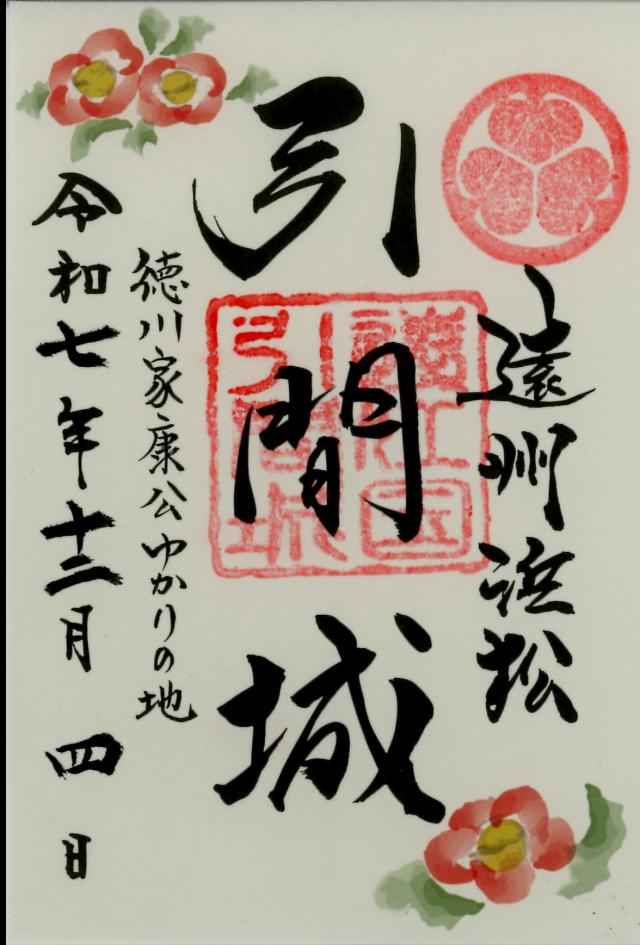 遠州浜松
引間城
遠江国
引間城
徳川家康公ゆかりの地
令和七年十二月四日